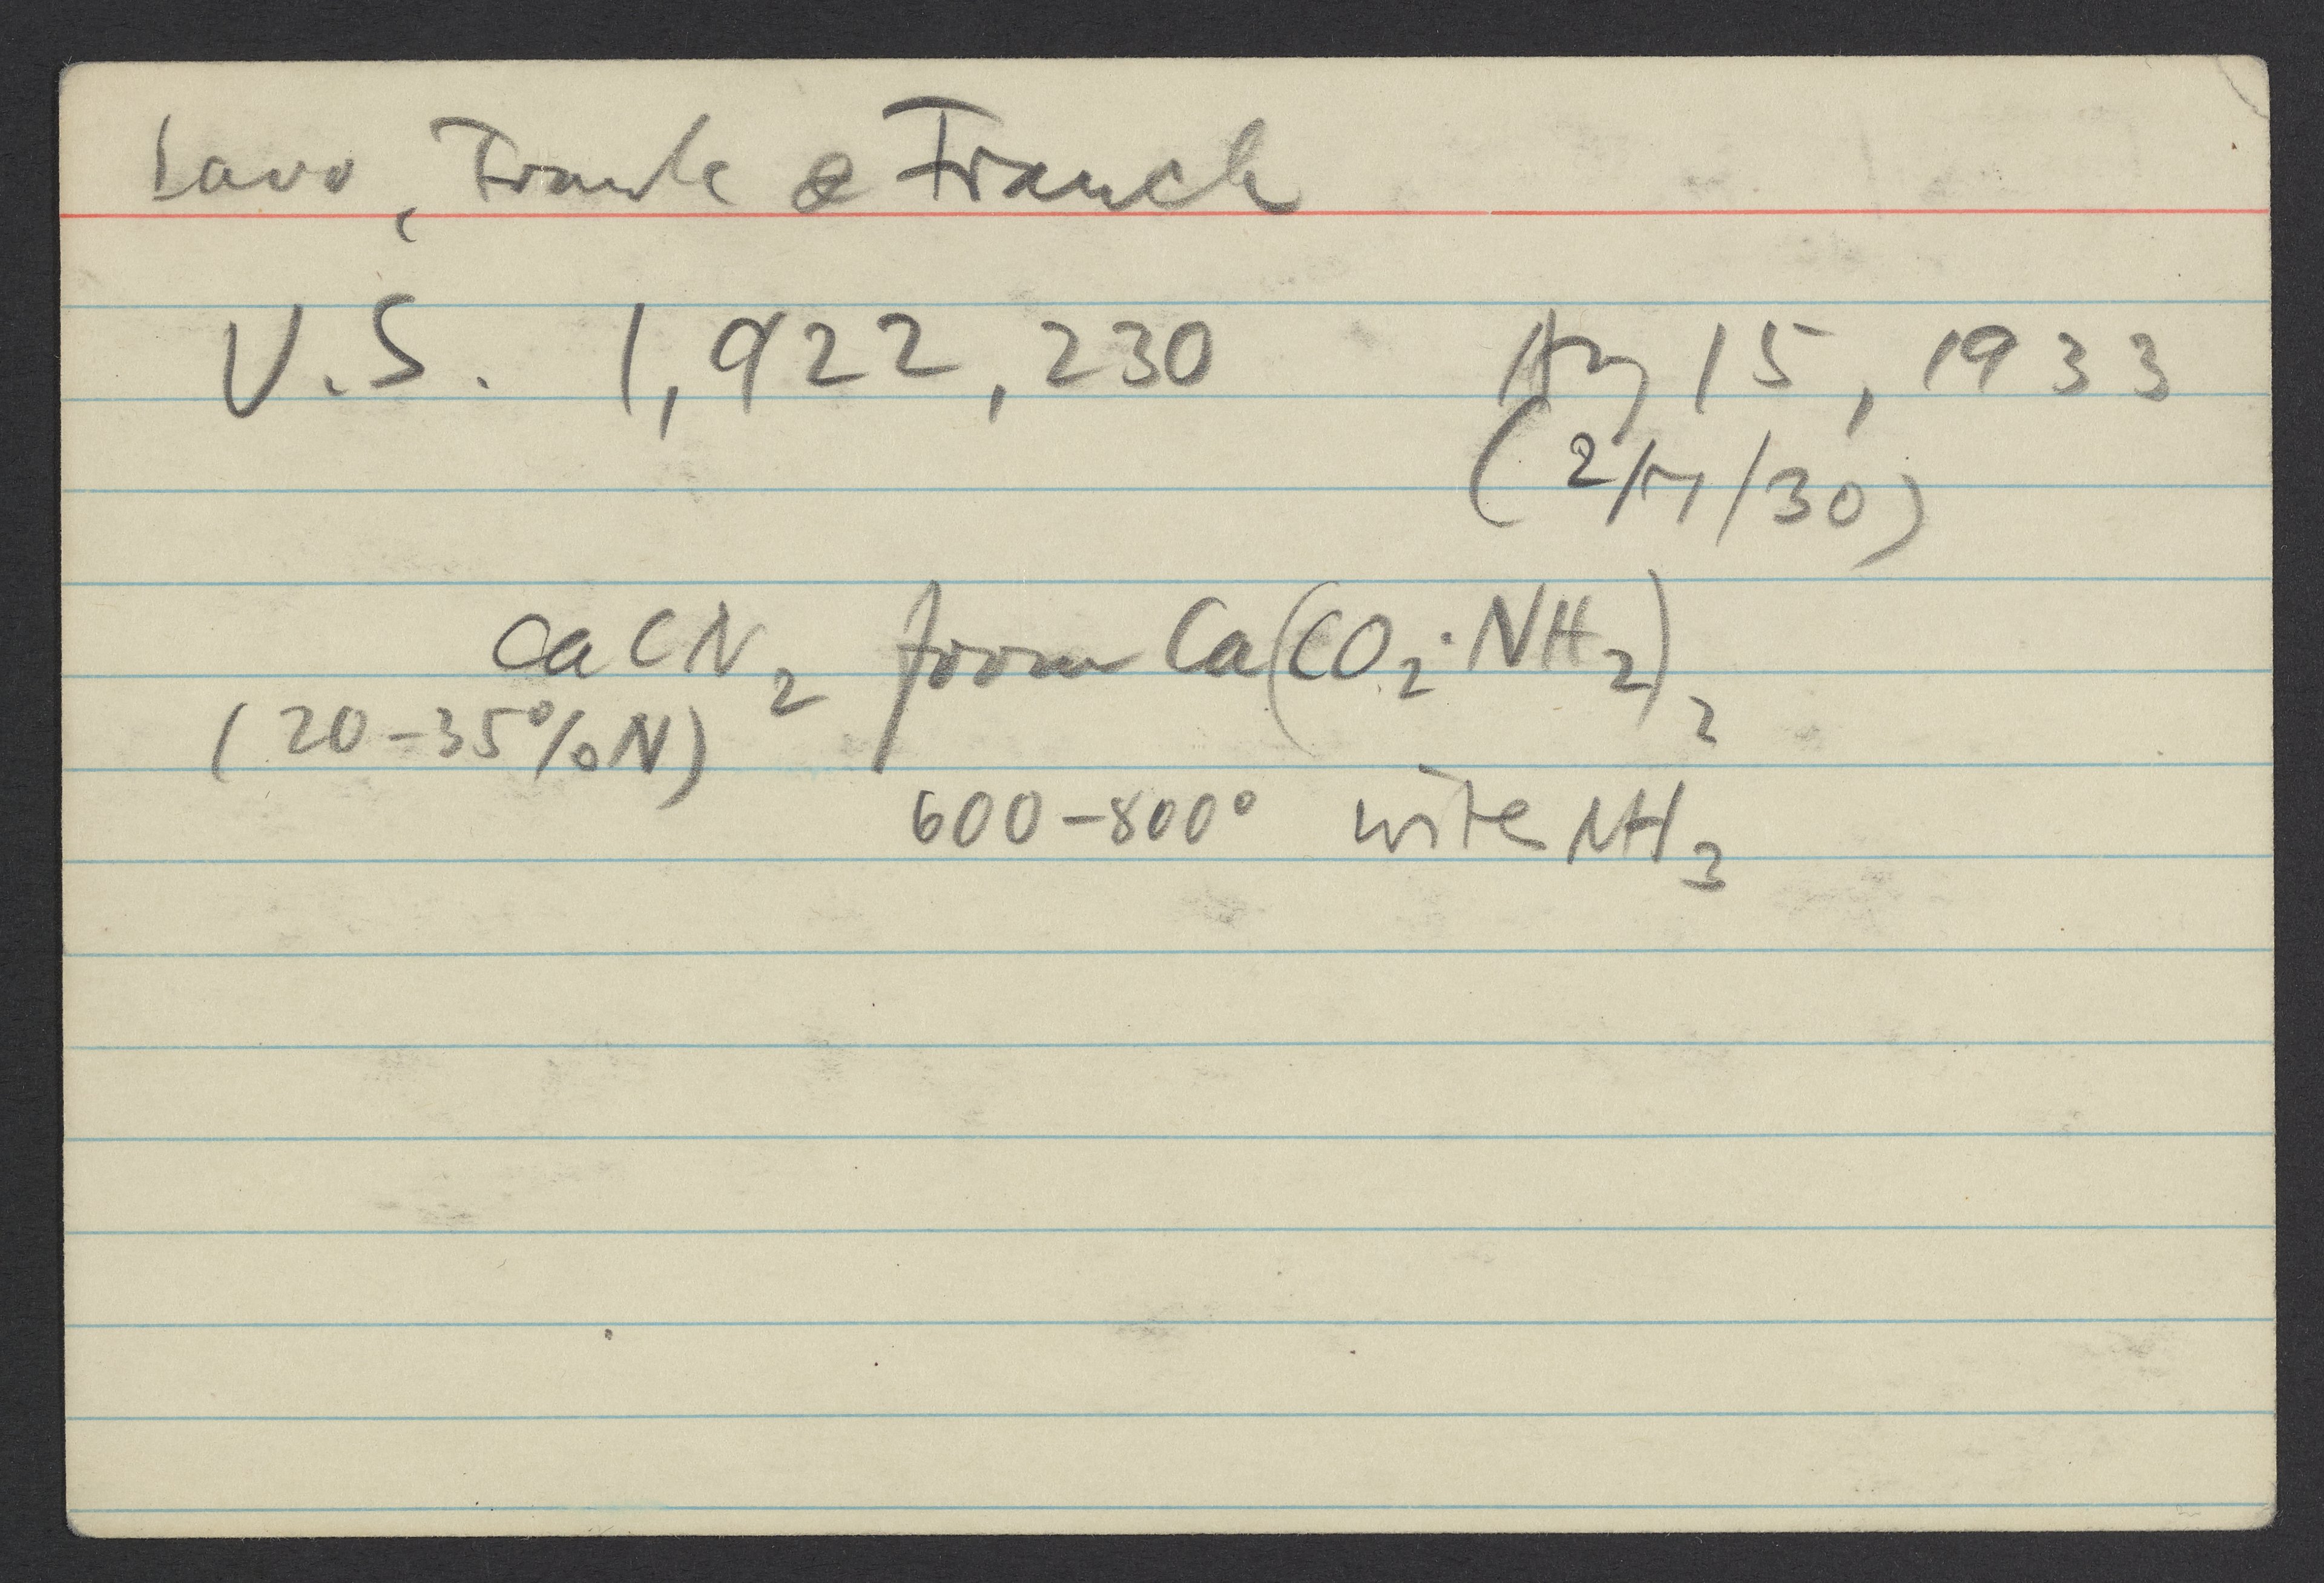 Caro, Frank & Franck
U.S. 1,922,230 Aug 15, 1933
(2/17/30)
CaCN₂ from Ca(CO₂·NH₂)₂
(20-35% N)
600-800° with NH₃